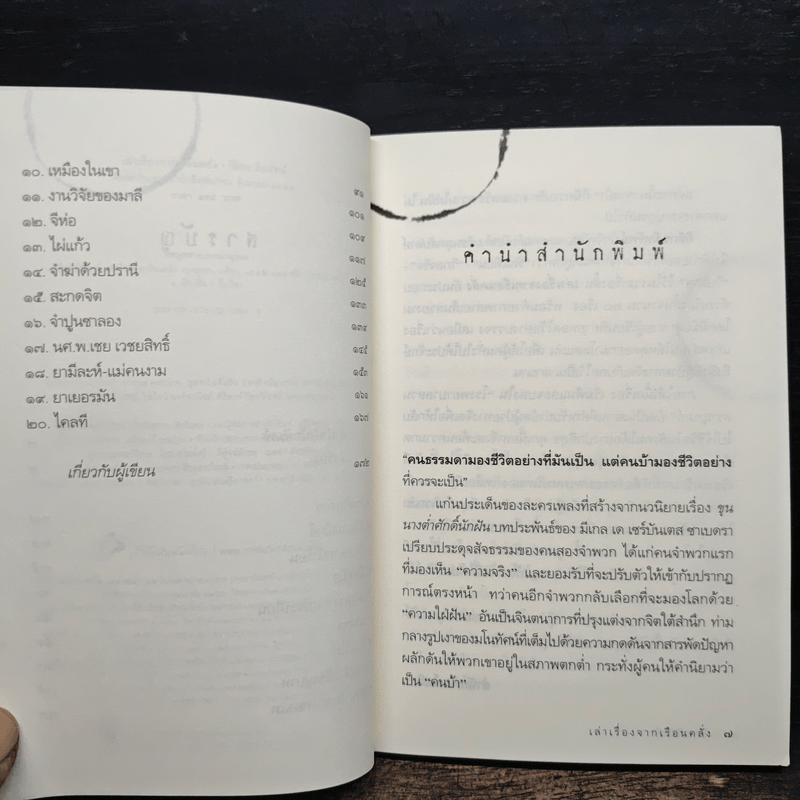 ๑๐. เหมืองในเขา ๙๑
๑๑. งานวิจัยของมาลี ๑๐๑
๑๒. จีห่อ ๑๐๙
๑๓. ไผ่แก้ว ๑๑๗
๑๔. จำฆ่าด้วยปรานี ๑๒๕
๑๕. สะกดจิต ๑๓๓
๑๖. จำปูนซาลอง ๑๓๙
๑๗. นศ.พ.เชย เวชยสิทธิ์ ๑๔๕
๑๘. ยามีละห์-แม่คนงาม ๑๕๓
๑๙. ยาเยอรมัน ๑๖๑
๒๐. ไคลที ๑๖๗
เกี่ยวกับผู้เขียน ๑๗๒
คำนำสำนักพิมพ์
“คนธรรมดามองชีวิตอย่างที่มันเป็น แต่คนบ้ามองชีวิตอย่าง
ที่ควรจะเป็น”
แก่นประเด็นของละครเพลงที่สร้างจากนวนิยายเรื่อง ขุน
นางต่ำศักดิ์นักฝัน บทประพันธ์ของ มีเกล เด เซร์บันเตส ซาเบดรา
เปรียบประดุจสัจธรรมของคนสองจำพวก ได้แก่คนจำพวกแรก
ที่มองเห็น “ความจริง” และยอมรับที่จะปรับตัวให้เข้ากับปรากฏ
การณ์ตรงหน้า ทว่าคนอีกจำพวกกลับเลือกที่จะมองโลกด้วย
“ความใฝ่ฝัน” อันเป็นจินตนาการที่ปรุงแต่งจากจิตใต้สำนึก ท่าม
กลางรูปเงาของมโนทัศน์ที่เต็มไปด้วยความกดดันจากสารพัดปัญหา
ผลักดันให้พวกเขาอยู่ในสภาพตกต่ำ กระทั่งผู้คนให้คำนิยามว่า
เป็น “คนบ้า”
เล่าเรื่องจากเรือนคลั่ง ๗